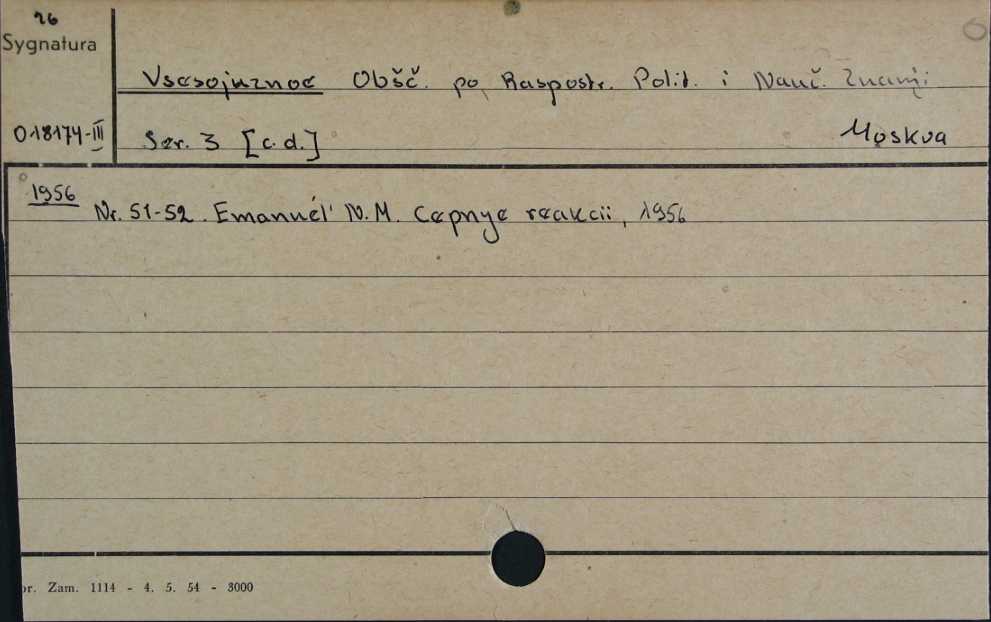 26
Sygnatura
Vsesojuznoe Obšč. po Raspostr. Polit. i Nauč. Znanij
018174-III Ser. 3 [c. d.] Moskva
1956
Nr. 51-52. Emanuél' N.M. Cepnye reakcii, 1956
or. Zam. 1114 - 4. 5. 54 - 3000